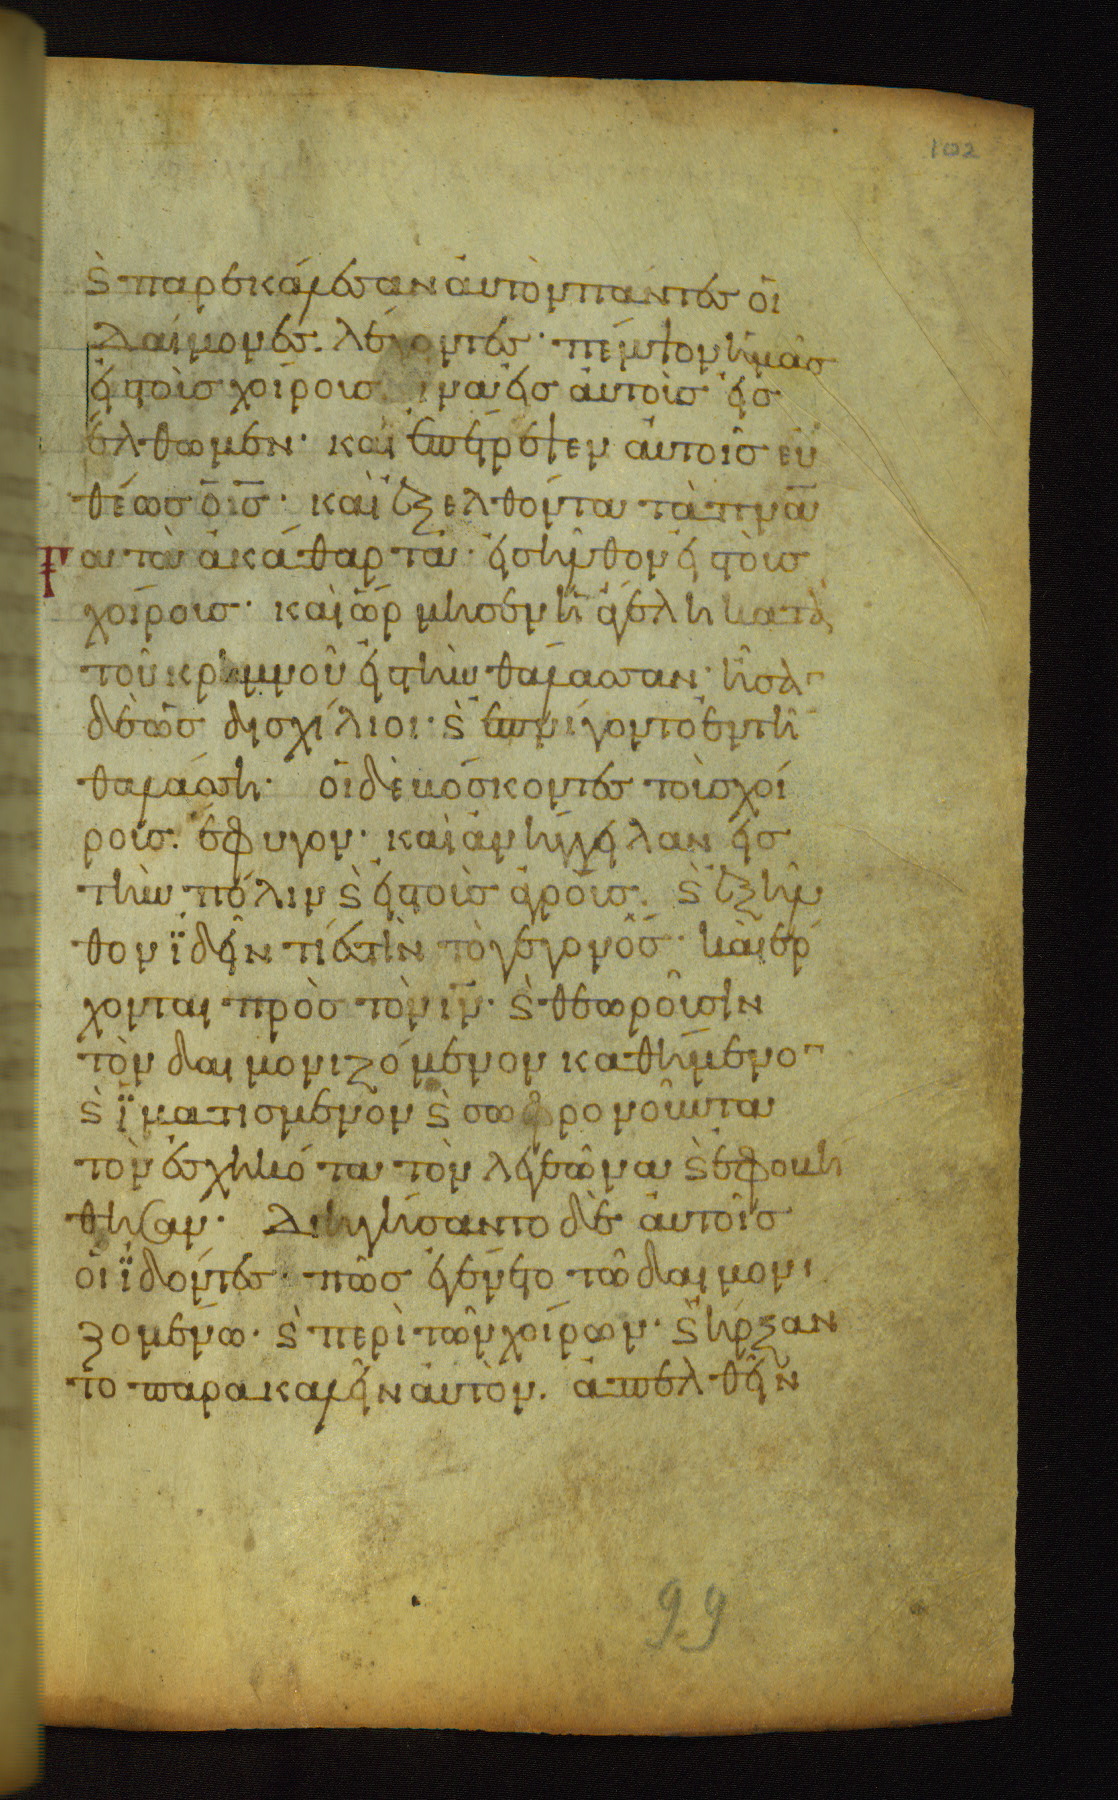 ϛ παρεκάλεσαν αὐτὸν πάντες οἱ
δαίμονες λέγοντες· πέμψον ἡμᾶς
εἰς τοὺς χοίρους ἵνα εἰς αὐτοὺς εἰσ
έλθωμεν· καὶ ἐπέτρεψεν αὐτοῖς εὐ
θέως ὁ ι̅ς̅· καὶ ἐξελθόντα τὰ πνα̅
Τα τὰ ἀκάθαρτα· εἰσῆλθον εἰς τοὺς
χοίρους· καὶ ὥρμησεν ἡ ἀγέλη κατὰ
τοῦ κρημνοῦ εἰς τὴν θάλασσαν· ἦσαν
δὲ ὡς δισχίλιοι· ϛ ἐπνίγοντο ἐν τῇ
θαλάσση· οἱ δὲ βόσκοντες τοὺς χοί
ρους· ἔφυγον· καὶ ἀνήγγειλαν εἰς
τὴν πόλιν ϛ εἰς τοὺς ἀγρούς. ϛ ἐξῆλ
θον ϊδεῖν τί ἐστὶν τὸ γεγονὸς· καὶ ἔρ
χονται πρὸς τὸν ι̅ν̅· ϛ θεωροῦσιν
τὸν δαιμονιζόμενον καθήμενον
ϛ ϊματισμένον ϛ σωφρονοῦντα
τὸν ἐσχηκότα τὸν λεγεῶνα ϛ ἐφοβή
θησαν· Διηγήσαντο δὲ αὐτοῖς
οἱ ϊδόντες· πῶς ἐγένετο τῶ δαιμονι
ζομένω· ϛ περὶ τῶν χοίρων· ϛ ἤρξαν
το παρακαλεῖν αὐτὸν. ἀπελθεῖν
99
102